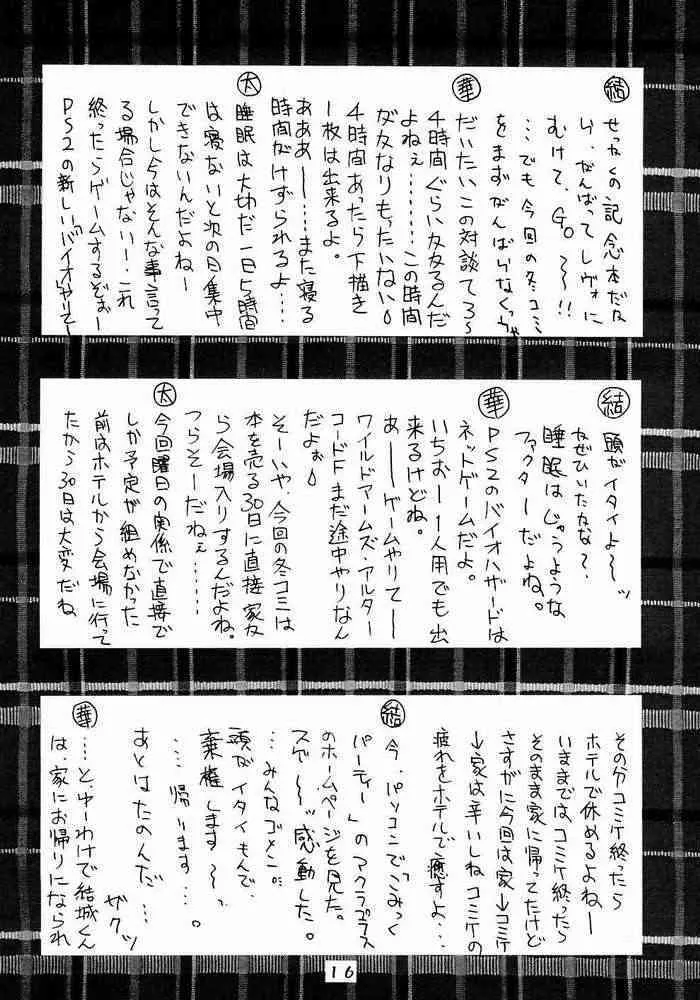 結
せっかくの記念本だな
い、がんばってレヴォに
むけて、Go〜〜!!
…でも今回の冬コミ
をまずがんばらなくっちゃ
華
だいたいこの対談てろ〜
4時間ぐらい
よねぇ………この時間
かなりもったいない
4時間あったら下描き
1枚は出来るよ。
あああー……また寝る
時間がけずられるよ……
太
睡眠は大切だ一日5時間
は寝ないと次の日集中
できないんだよねー
しかし今はそんな事言って
る場合じゃないー!これ
終ったらゲームするぞぉー
PS2の新しいバイオやりてー
結
頭がイタイよ〜ッ
なぜひいたかな?、
睡眠はじゅうような
ファクターだよね。
華
PS2のバイオハザードは
ネットゲームだよ。
いちおー1人用でも出
来るけどね。
あーーゲームやりてーー
ワイルドアームズ・アルター
コードFまだ途中やりなん
だよぉ
そーいや、今回の冬コミは
本を売る30日に直接家
ら会場入りするんだよね。
つらそーだねぇ……
太
今回曜日の関係で直接で
しか予定が組めなかった
前はホテルから会場に行って
たから30日は大変だね
その分コミケ終ったら
ホテルで休めるよねー
いままではコミケ終ったら
そのまま家に帰ってたけど
さすがに今回は家→コミケ
→家は辛いしねコミケの
疲れをホテルで癒すよ…
結
今、パソコンで「こみっく
パーティー」のアクアプラス
のホームページを見た。
スゲ〜〜ッ感動した。
…みんなゴメン。
頭がイタイもんで、
棄権します〜〜。
…帰ります…。
あとはたのんだ…
ザクッ
華
…と、ゆーわけで結城くん
は、家にお帰りになられ
16